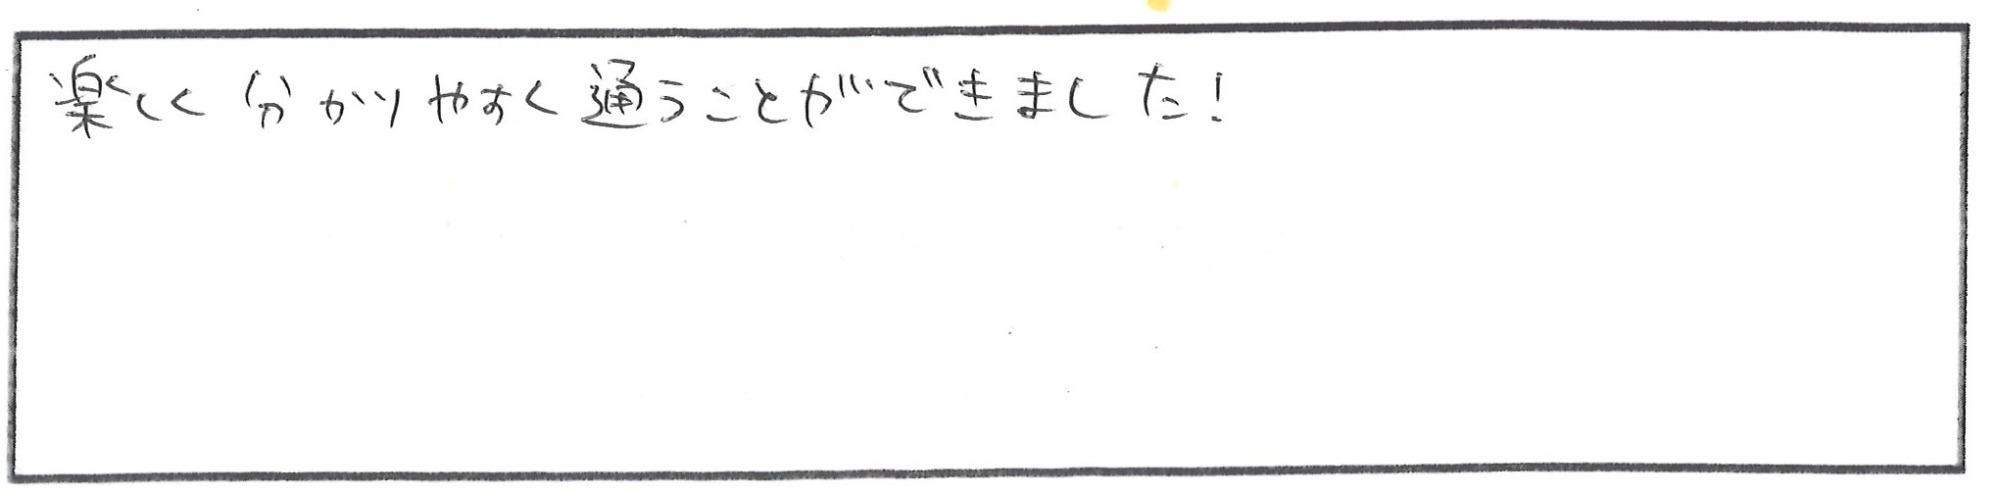 楽しく分かりやすく通うことができました!